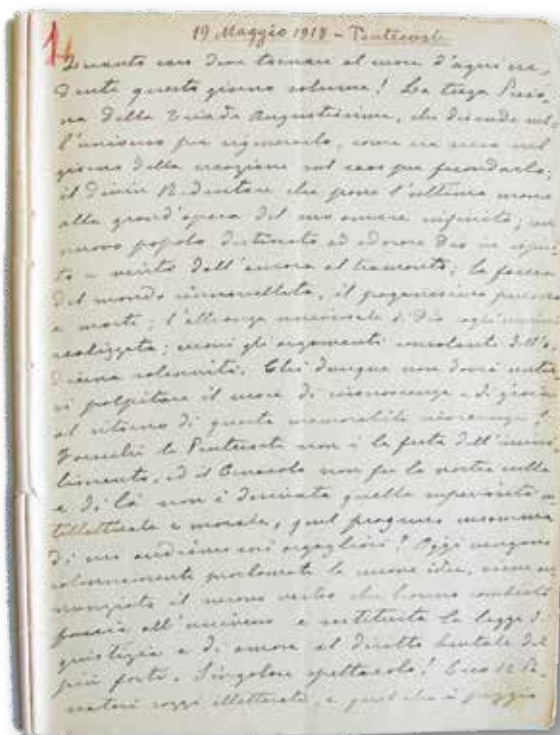 1
19 Maggio 1918 - Pentecoste
Quanto caro deve tornare al cuore d'ogni cre-
dente questo giorno solenne! La terza Perso-
na della Triade Augustissima, che discende sul-
l'universo per rigenerarlo, come era sceso nel
giorno della creazione sul caos per fecondarlo;
il Divin Redentore che pone l'ultima mano
alla grand'opera del suo amore infinito; un
nuovo popolo destinato ad adorare Dio in ispiri-
to e verità dall'aurora al tramonto; la faccia
del mondo rinnovellata, il paganesimo percosso
a morte; l'alleanza universale di Dio cogli uomini
realizzata; eccovi gli argomenti consolanti dell'o-
dierna solennità. Chi dunque non dovrà sentir-
si palpitare il cuore di riconoscenza e di gioia
al ritorno di questa memorabile ricorrenza?
la Pentecoste non è la festa dell'incivi-
limento, ed il Cenacolo non fu la nostra culla
e di là non è derivata quella superiorità in-
tellettuale e morale, quel progresso insomma
di cui andiamo così orgogliosi? Oggi vengono
solennemente proclamate le nuove idee, viene an-
nunziato il nuovo verbo che hanno cambiato
faccia all'universo e sostituita la legge di
giustizia e di amore al diritto brutale del
più forte. Singolare spettacolo! Ecco 12 Pe-
scatori rozzi illetterati, e quel che è peggio